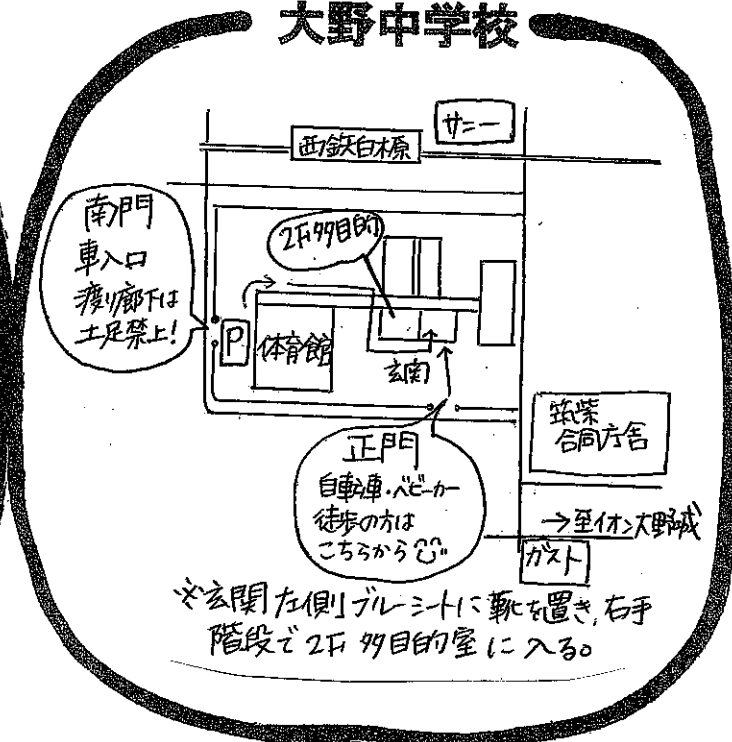 大野中学校
サニー
西鉄白木原
南門
車入口
渡り廊下は
土足禁止!
2F多目的
P
体育館
玄関
筑紫
合同庁舎
正門
自転車・ベビーカー
徒歩の方は
こちらから
→至イオン大野城
ガスト
※玄関左側ブルーシートに靴を置き、右手
階段で2F多目的室に入る。